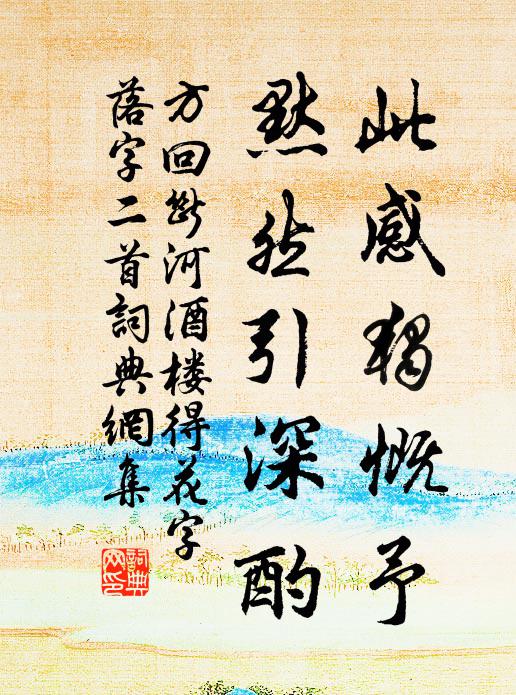 此感獨慨予
默然引深酌
方回断河酒楼得花字
落字二首詞典網集
詞典
网印